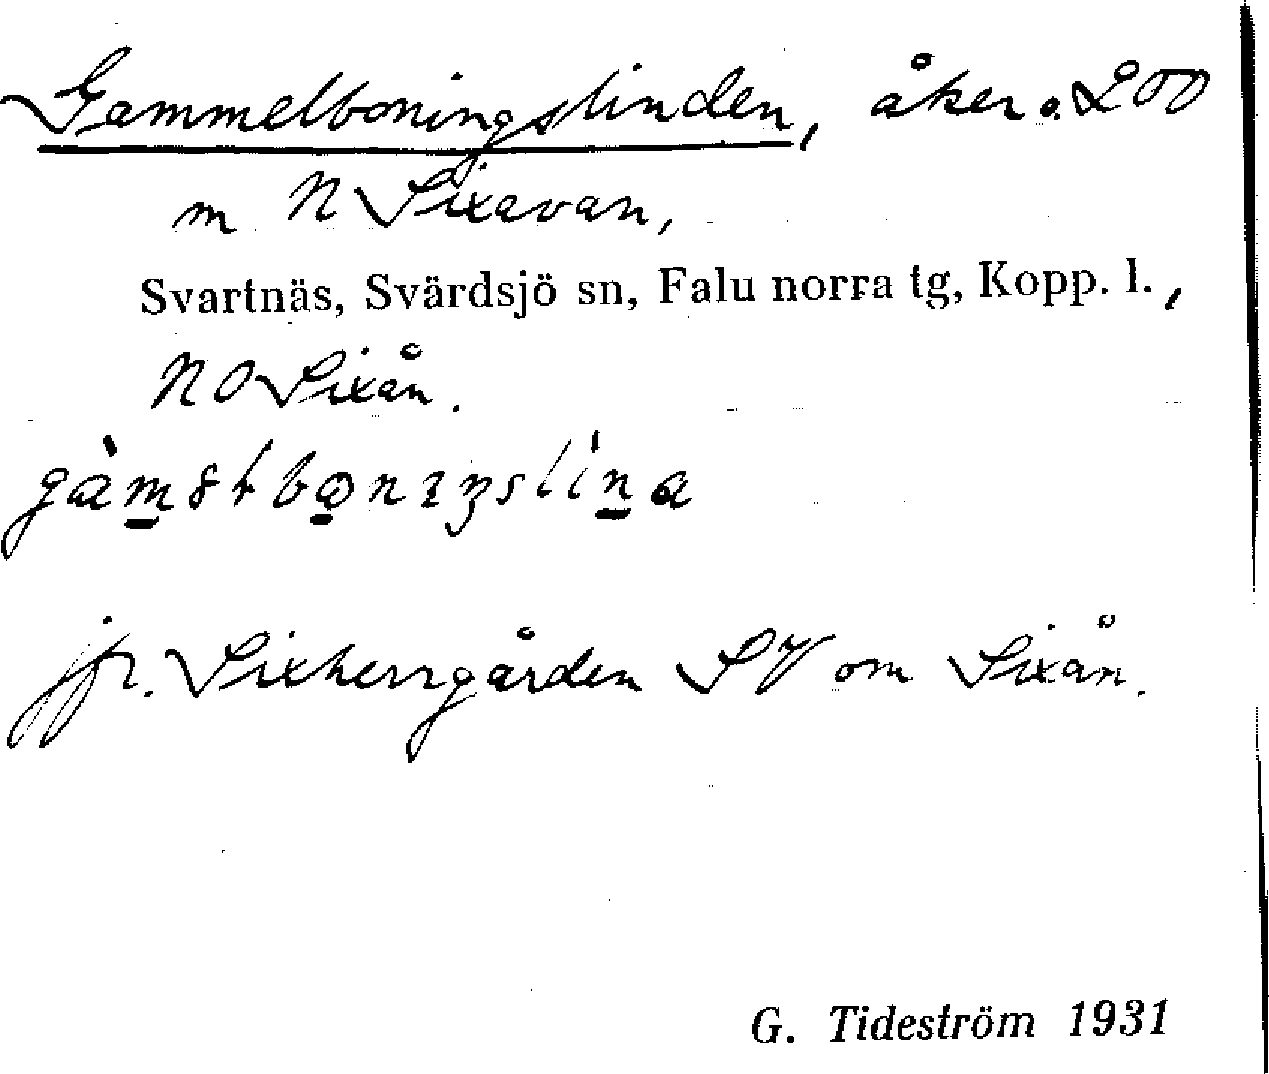 Gammelboningslinden, åker c. 200
m N Sixavan,
Svartnäs, Svärdsjö sn, Falu norra tg, Kopp. l.,
NO Sixån.
jfr. Sixherrgården SV om Sixån.
G. Tideström 1931